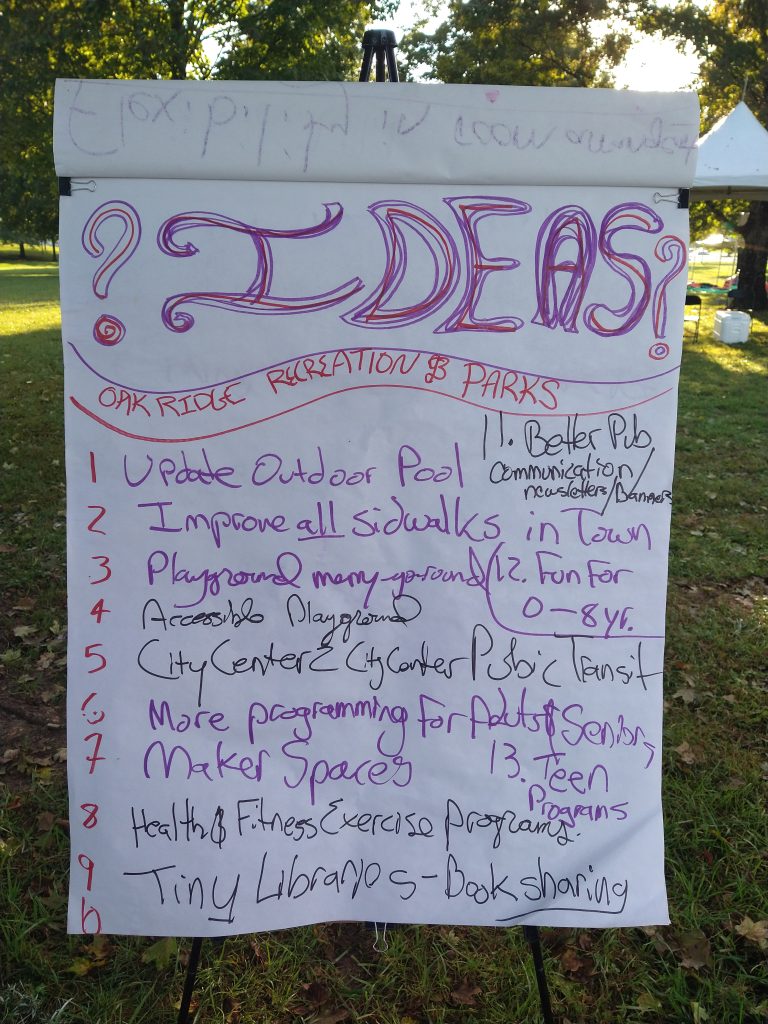 ? IDEAS ?
OAK RIDGE RECREATION & PARKS
1 Update Outdoor Pool
11. Better Pub
Communication/
newsletters/Banners
2 Improve all sidwalks in Town
3 Playground merry-go-round
12. Fun For
0-8 yr.
4 Accessible Playground
5 City Center 2 City Center Pubic Transit
6 More programming For Aduts & Seniors
7 Maker Spaces
13. Teen
Programs
8 Health & Fitness Exercise Programs.
9 Tiny Libraries - Book sharing